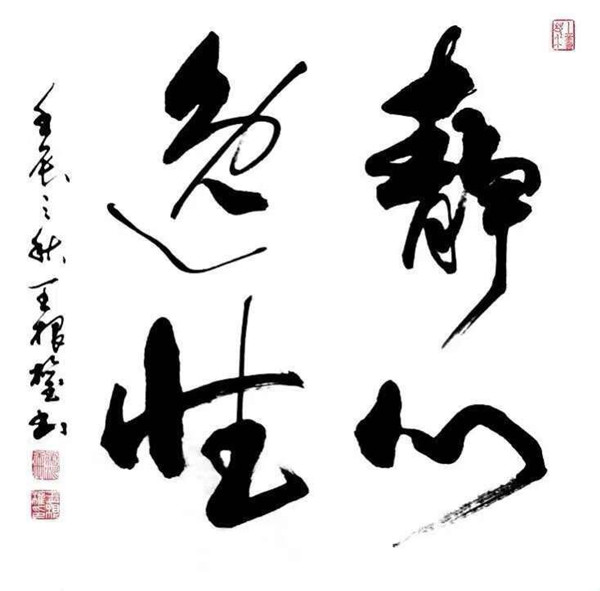 静心
逸性
壬辰之秋王根书